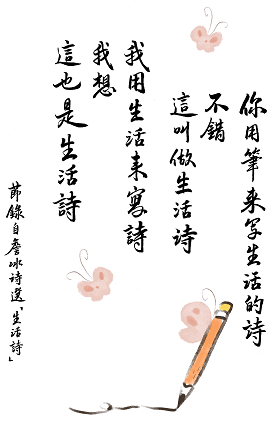 你用筆來写生活的詩
不錯
這叫做生活诗
我用生活来寫詩
我想
這也是生活詩
節錄自詹冰诗選、「生活詩」